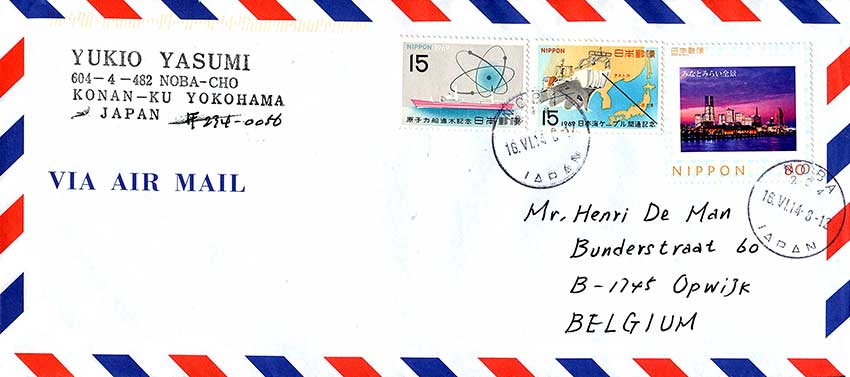 YUKIO YASUMI
604-4-482 NOBA-CHO
KONAN-KU YOKOHAMA
JAPAN 〒234-0056
VIA AIR MAIL
NIPPON 1969
15
原子力船進水記念 日本郵便
NIPPON 日本郵便
15 1969 日本海ケーブル開通記念
日本郵便
みなとみらい全景
NIPPON 80
NOBA
16.VI.14 8-12
JAPAN
NOBA
234
16.VI.14 8-12
JAPAN
Mr. Henri De Man
Bunderstraat 60
B-1745 Opwijk
BELGIUM